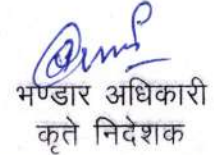 भण्डार अधिकारी
कृते निदेशक